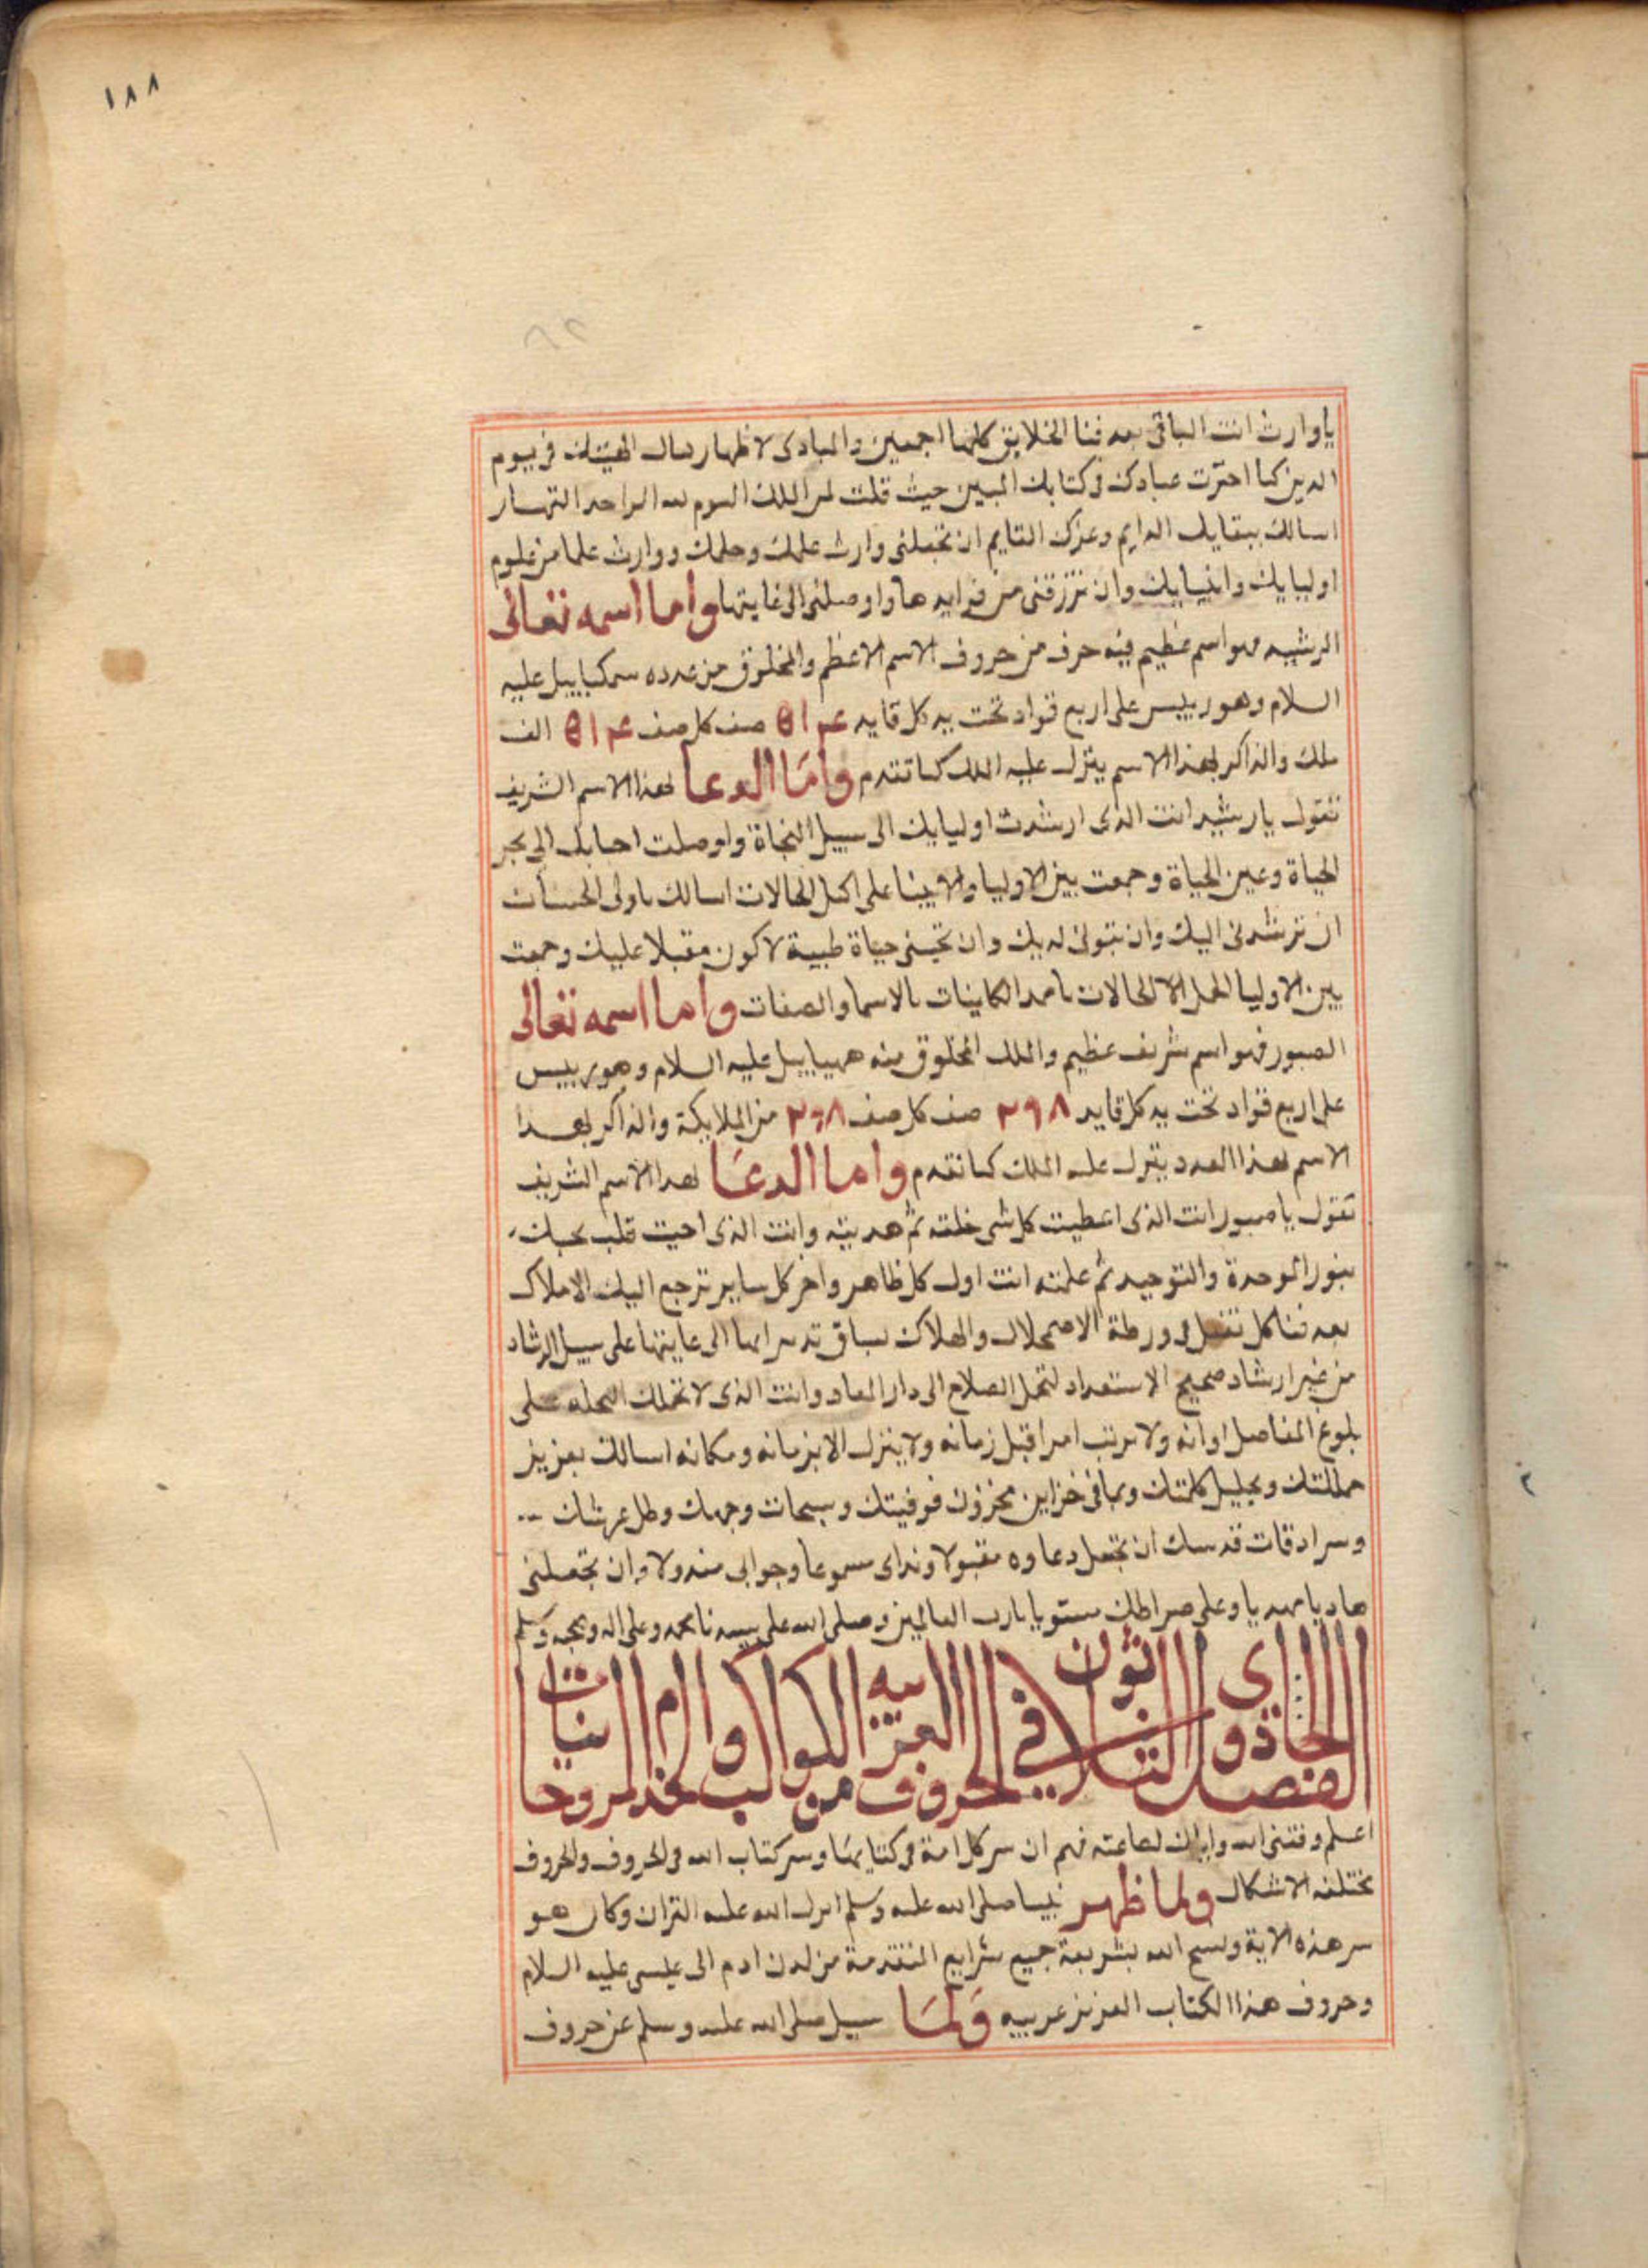 ١٨٨
يا وارث انت الباقى بعد فنا الخلايق كلها اجمعين والمبادى لاظهار الهيتك فى يوم
الدين كما اخبرت عبادك فى كتابك المبين حيث قلت لمن الملك اليوم لله الواحد القهار
اسالك ببقايك الدايم وعزك القايم ان تجعلنى وارث علمك وحلمك ووارث علما من علوم
اوليايك وانبيايك وان ترزقنى من فوايدها واوصلنى الى غايتها واما اسمه تعالى
الرشيد فهو اسم عظيم فيه حرف من حروف الاسم الاعظم والمخلوق من عدده سمكياييل عليه
السلام وهو رييس على اربع قواد تحت يد كل قايد ٥١٤ صف كل صف ٥١٤ الف
ملك والذاكر لهذا الاسم ينزل عليه الملك كما تقدم واما الدعا لهذا الاسم الشريف
تقول يا رشيد انت الذى ارشدت اوليايك الى سبيل النجاة واوصلت احبابك الى بحر
الحياة وعين الحياة وجمعت بين الاوليا والانبيا على اكمل الحالات اسالك يا ولى الحسنات
ان ترشدنى اليك وان تتولى لديك وان تحينى حياة طيبة لاكون مقبلا عليك وجمعت
بين الاوليا الحالات يا ممد الكاينات بالاسما والصفات واما اسمه تعالى
الصبور فهو اسم شريف عظيم والملك المخلوق منه ههياييل عليه السلام وهو رييس
على اربع قواد تحت يد كل قايد ٢٩٨ صف كل صف ٢٩٨ من الملايكة والذاكر لهذا
الاسم بهذا العدد ينزل عليه الملك كما تقدم واما الدعا لهذا الاسم الشريف
تقول يا صبور انت الذى اعطيت كل شى خلقه ثم هديته وانت الذى احيت قلب محبك
بنور الوحدة والتوحيد ثم علمته انت اول كل ظاهر واخر كل ساير ترجع اليك الاملاك
بعد فنا كل فى ورطة الاضمحلال والهلاك الى غايتها على سبيل الرشاد
من غير ارشاد صحيح الاستعداد الصلاح الى دار المعاد وانت الذى لا تحملك العجله على
بلوغ المفاصل اوانه ولا ترتب امرا قبل زمانه ولا ينزل الا بزمانه ومكانه اسالك بعزيز
مملكتك وبجليل كلمتك وبما فى خزاين مخزون فوقيتك وسبحات وجهك وظل عرشك
وسرادقات قدسك ان تجعل دعاوه مقبولا ونداى مسموعا وجوابى مبذولا وان تجعلنى
هاديا مهديا وعلى صراطك مستويا يا رب العالمين وصلى الله على سيدنا محمد وعلى اله وصحبه وسلم
الفصل الحادى والثلاثون فى الحروف العربيه من الكواكب والخدام الروحانيات
اعلم وفقنى الله واياك لطاعته فهم ان سر كل امة فى كتابها وسر كتاب الله فى الحروف والحروف
مختلفه الاشكال ولما ظهر نبينا صلى الله عليه وسلم انزل الله عليه القران وكان هو
سر هذه الاية ونسخ الله بشريعة جميع شرايع المتقدمة من لدن ادم الى عيسى عليه السلام
وحروف هذا الكتاب العزيز عربيه ولما سيل صلى الله عليه وسلم عن حروف